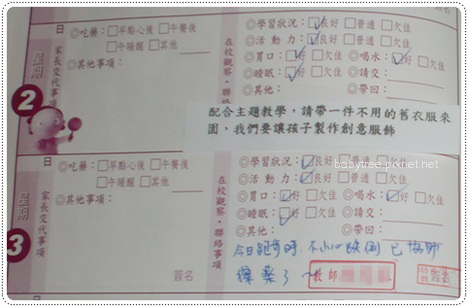 日
◎吃藥：□早點心後 □午餐後
□午睡醒 □其他
◎其他事項：
家長交代事項
星期
2
在校觀察・聯絡事項
◎學習狀況：☑良好 □普通 □欠佳
◎活動力：☑良好 □普通 □欠佳
◎胃口：□好 □欠佳 ◎喝水：☑好 □欠佳
◎睡眠：□好 □欠佳 □請交
◎其他： ◎帶回：
配合主題教學，請帶一件不用的舊衣服來
園，我們要讓孩子製作創意服飾
babytree.pixnet.net
日
◎吃藥：□早點心後 □午餐後
□午睡醒 □其他
◎其他事項：
家長交代事項
星期
3
簽名
在校觀察・聯絡事項
◎學習狀況：☑良好 □普通 □欠佳
◎活動力：☑良好 □普通 □欠佳
◎胃口：☑好 □欠佳 ◎喝水：☑好 □欠佳
◎睡眠：☑好 □欠佳 □請交
◎其他： ◎帶回：
今日跑步時,不小心跌倒 已協助
擦藥了～
教師
簽名